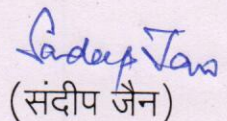 Sandeep Jain
(संदीप जैन)